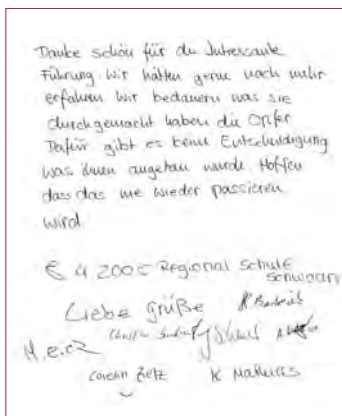 Danke schön für die Interessante
Führung. Wir hätten gerne noch mehr
erfahren Wir bedauern was sie
durchgemacht haben die Opfer
Dafür gibt es keine Entschuldigung
was ihnen angetan wurde. Hoffen
dass das nie wieder passieren
wird.
Regional Schule
Schwaan
Liebe Grüße
Carolin Zietz
K Mathews